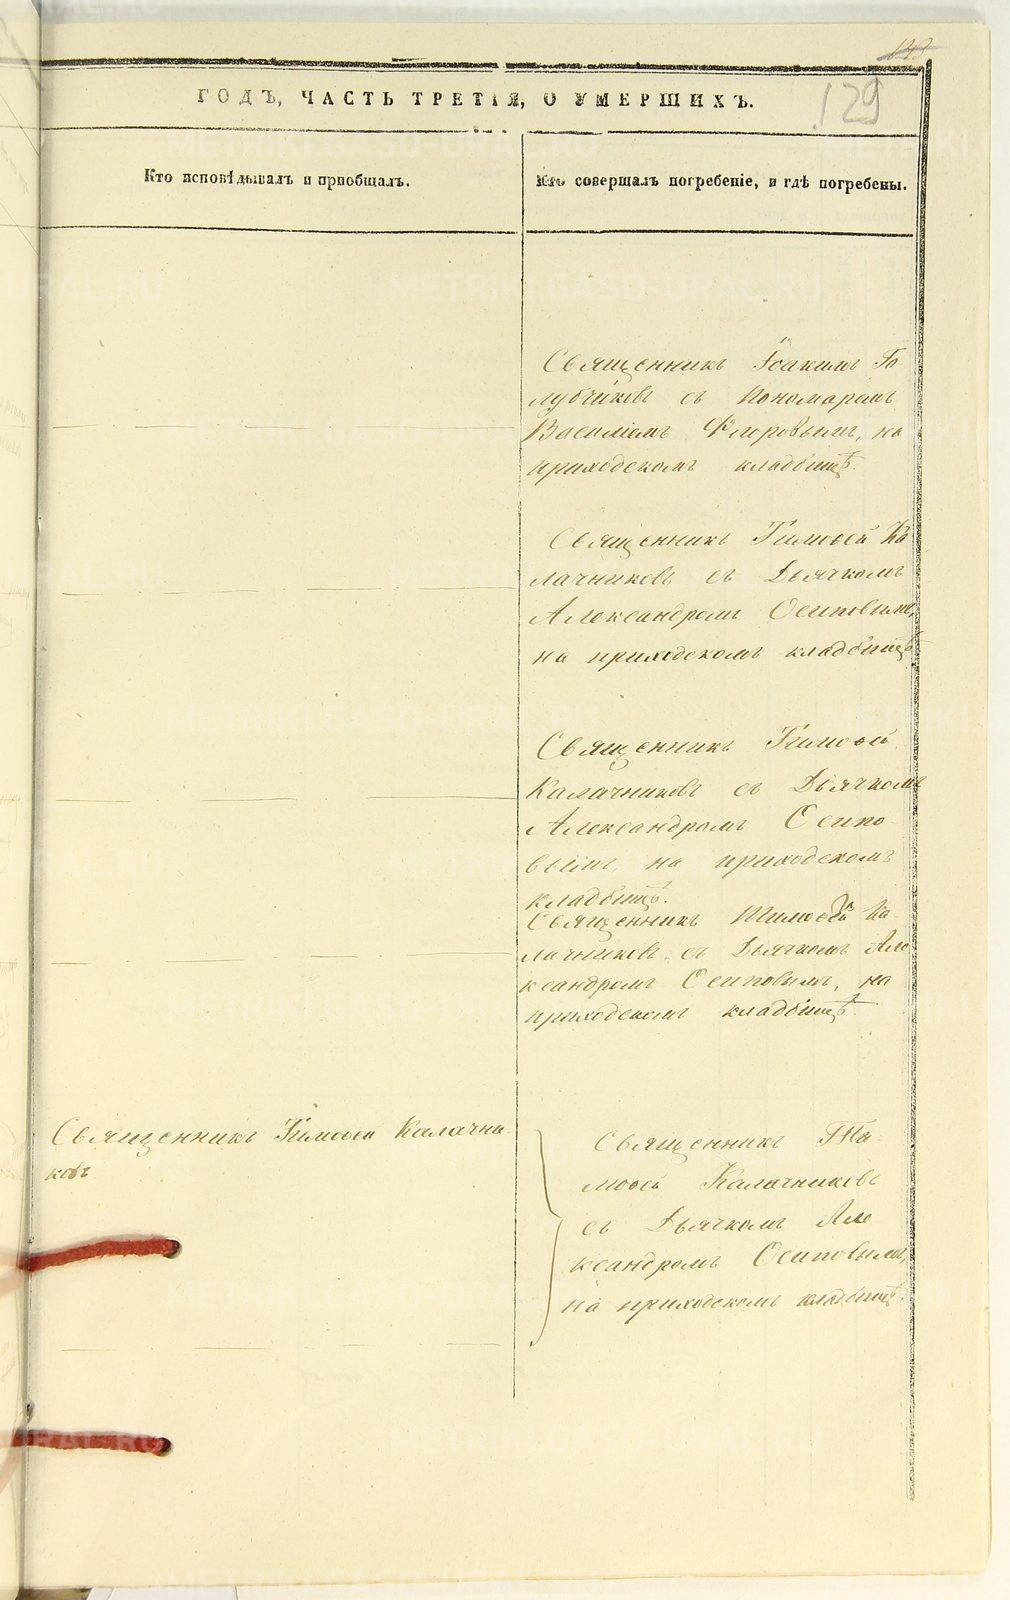 129
ГОДЪ, ЧАСТЬ ТРЕТІЯ, О УМЕРШИХЪ.
Кто исповѣдывалъ и пріобщалъ.
Кто совершалъ погребеніе, и гдѣ погребены.
Священникъ Іоакимъ Го-
лубчиковъ съ Пономаремъ
Василіемъ Флоровымъ, на
приходскомъ кладбищѣ.
Священникъ Тимоѳей Ка
лачниковъ съ Дьячкомъ
Александромъ Осиповымъ,
на приходскомъ кладбищѣ
Священникъ Тимоѳей
Калачниковъ съ Дьячкомъ
Александромъ Осипо-
вымъ, на приходскомъ
кладбищѣ.
Священникъ Тимоѳей Ка-
лачниковъ съ Дьячкомъ Але
ксандромъ Осиповымъ, на
приходскомъ кладбищѣ.
Священникъ Тимоѳей Калачни-
ковъ
Священникъ Ти-
моѳей Калачниковъ
съ Дьячкомъ Але
ксандромъ Осиповымъ,
на приходскомъ кладбищѣ.
METRIKI.GASO-URAL.RU